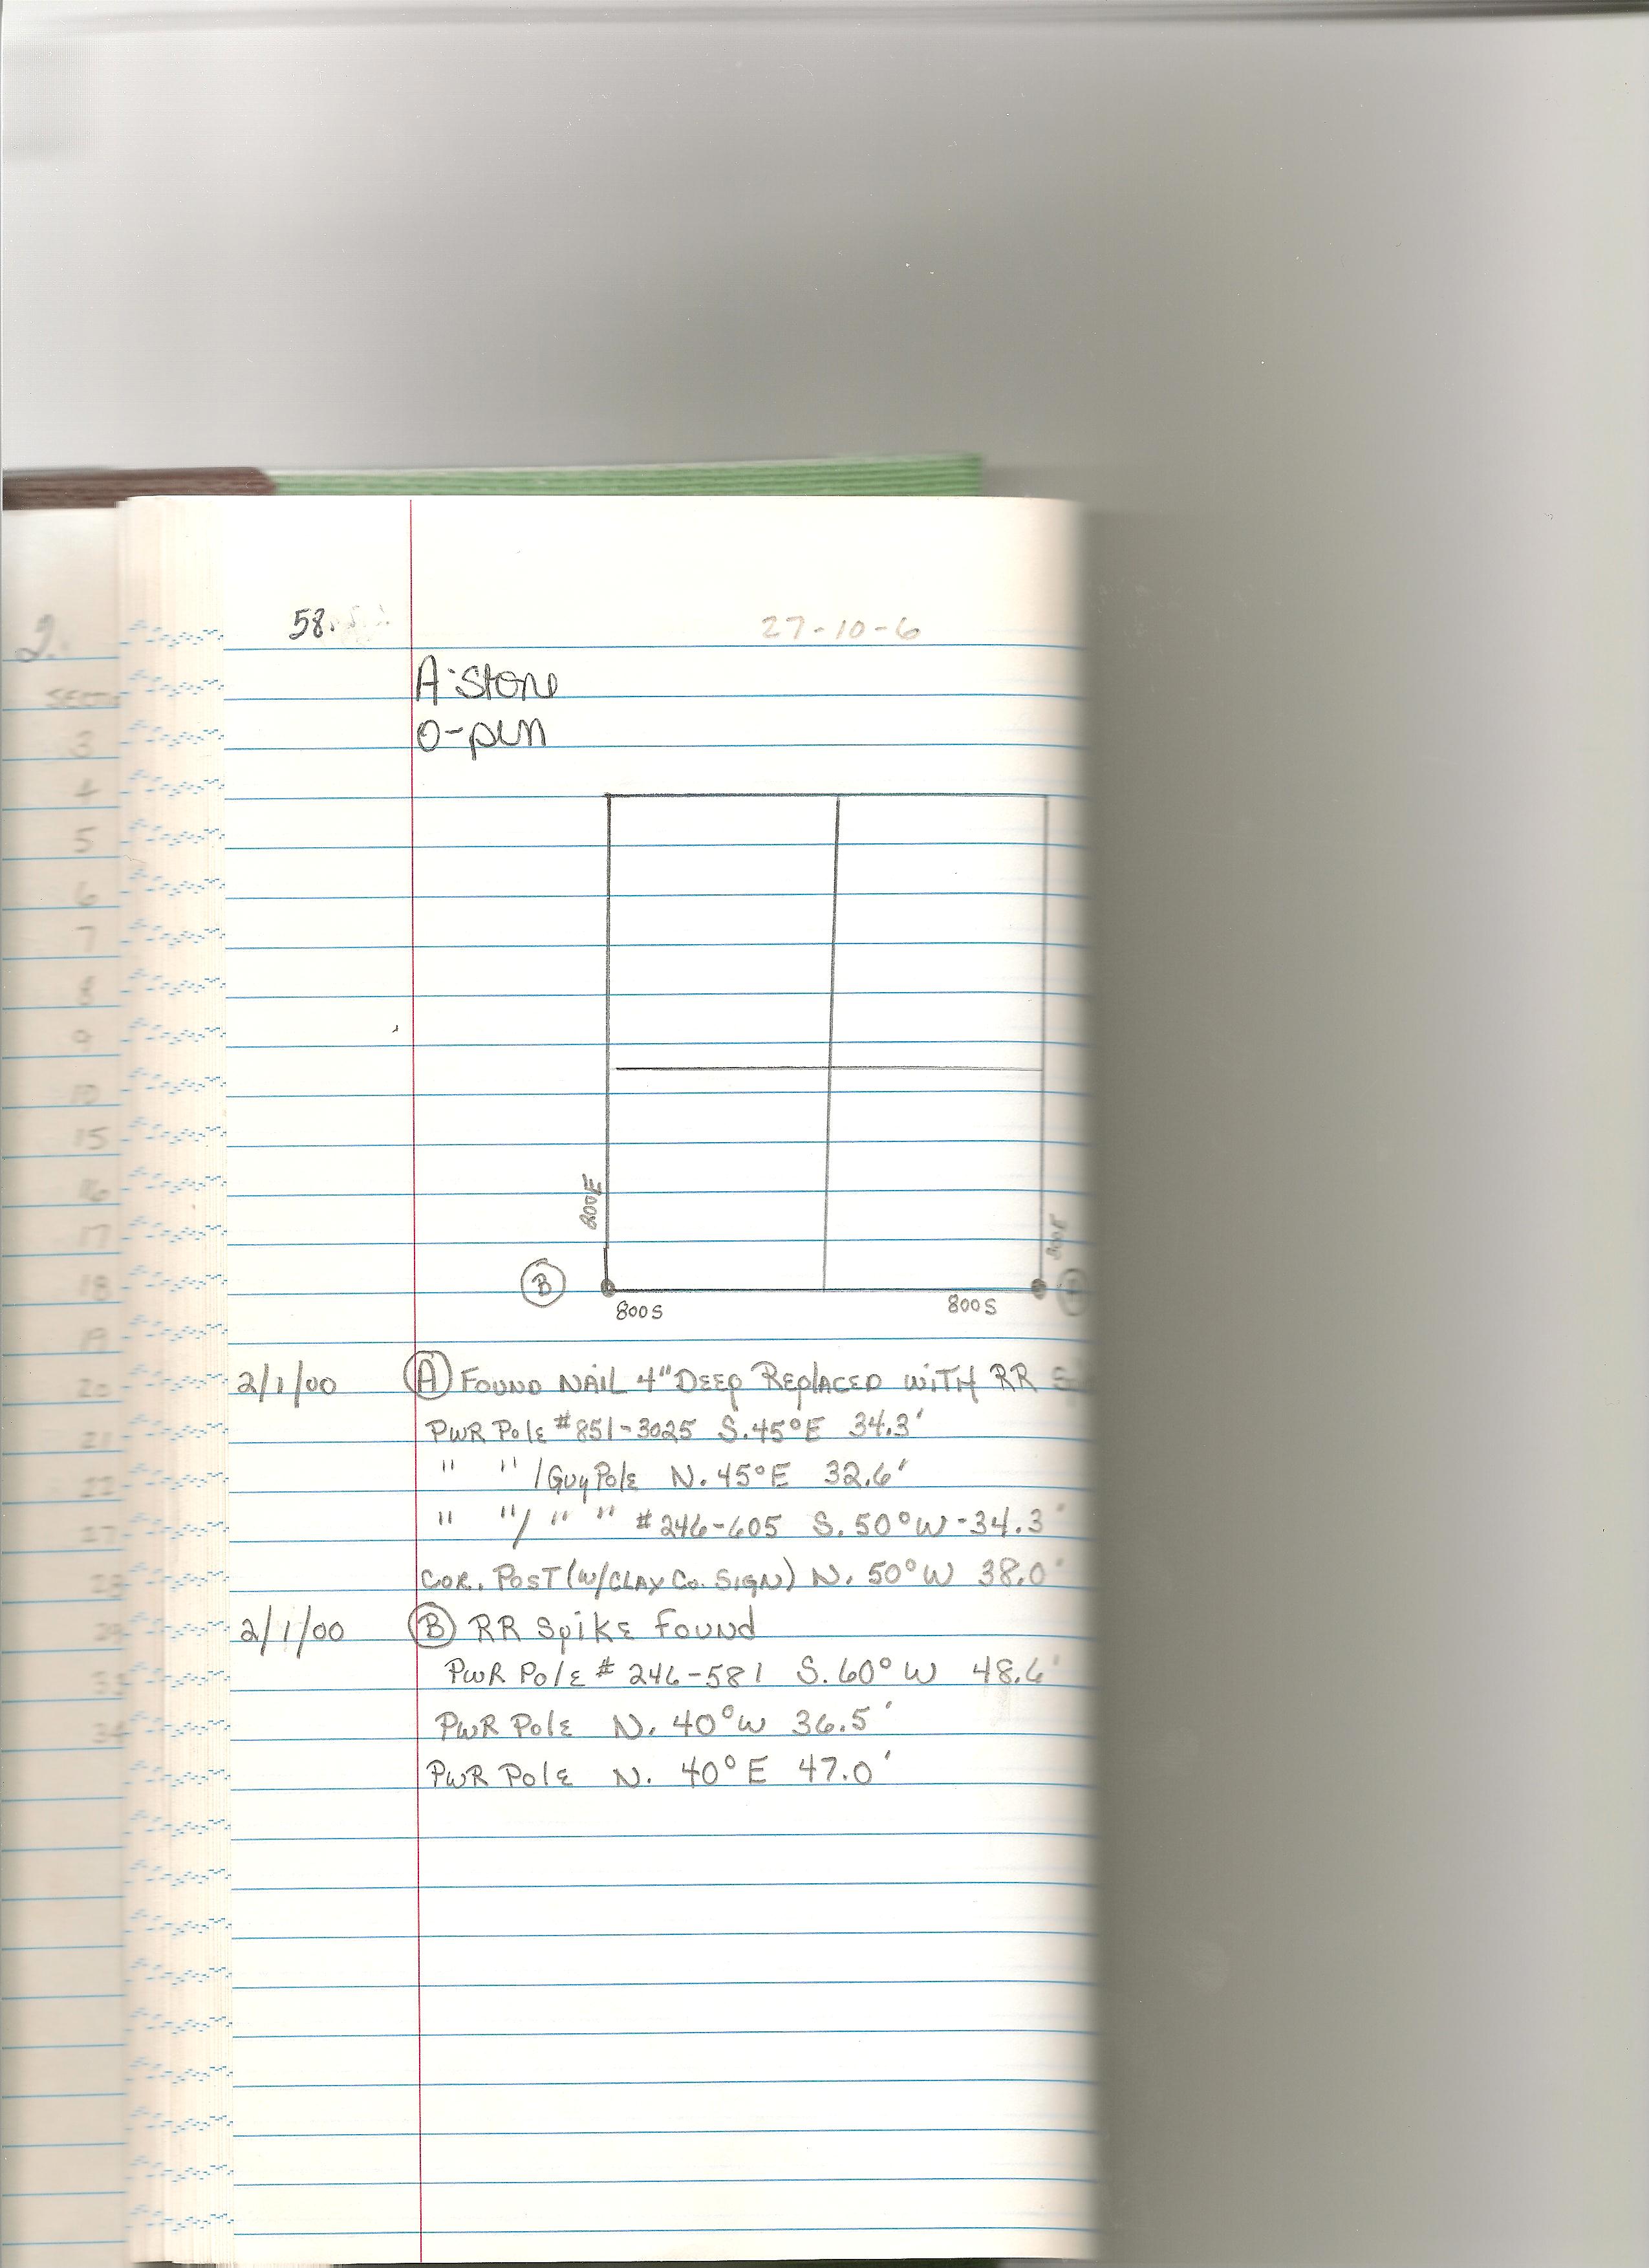 58.
27-10-6
A-Stone
O-pin
200E
300E
B
800S
800S
2/1/00 A FOUND NAIL 4" DEEP REPLACED WITH RR
PWR POLE #851-3025 S.45°E 34.3'
" " / GUY POLE N.45°E 32.6'
" " / " " #246-605 S.50°W-34.3'
COR. POST (W/CLAY CO. SIGN) N.50°W 38.0'
2/1/00 B RR SPIKE FOUND
PWR POLE # 246-581 S.60°W 48.6'
PWR POLE N.40°W 36.5'
PWR POLE N. 40°E 47.0'
2.
3
4
5
6
7
8
9
10
15
16
17
18
19
20
21
22
27
28